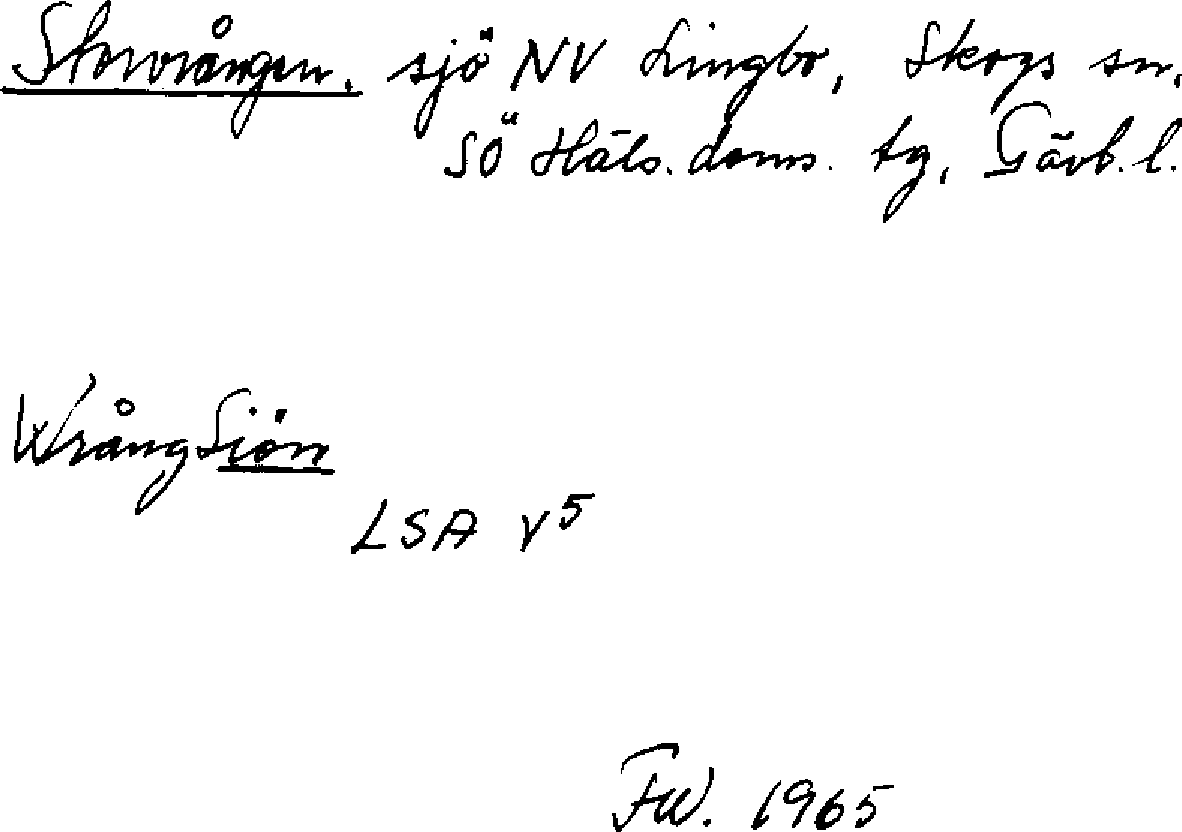 Storvrången, sjö NV Lingbo, Skogs sn,
SÖ Häls. doms. tg, Gävb. l.
WrångSiön
LSA V5
FW. 1965